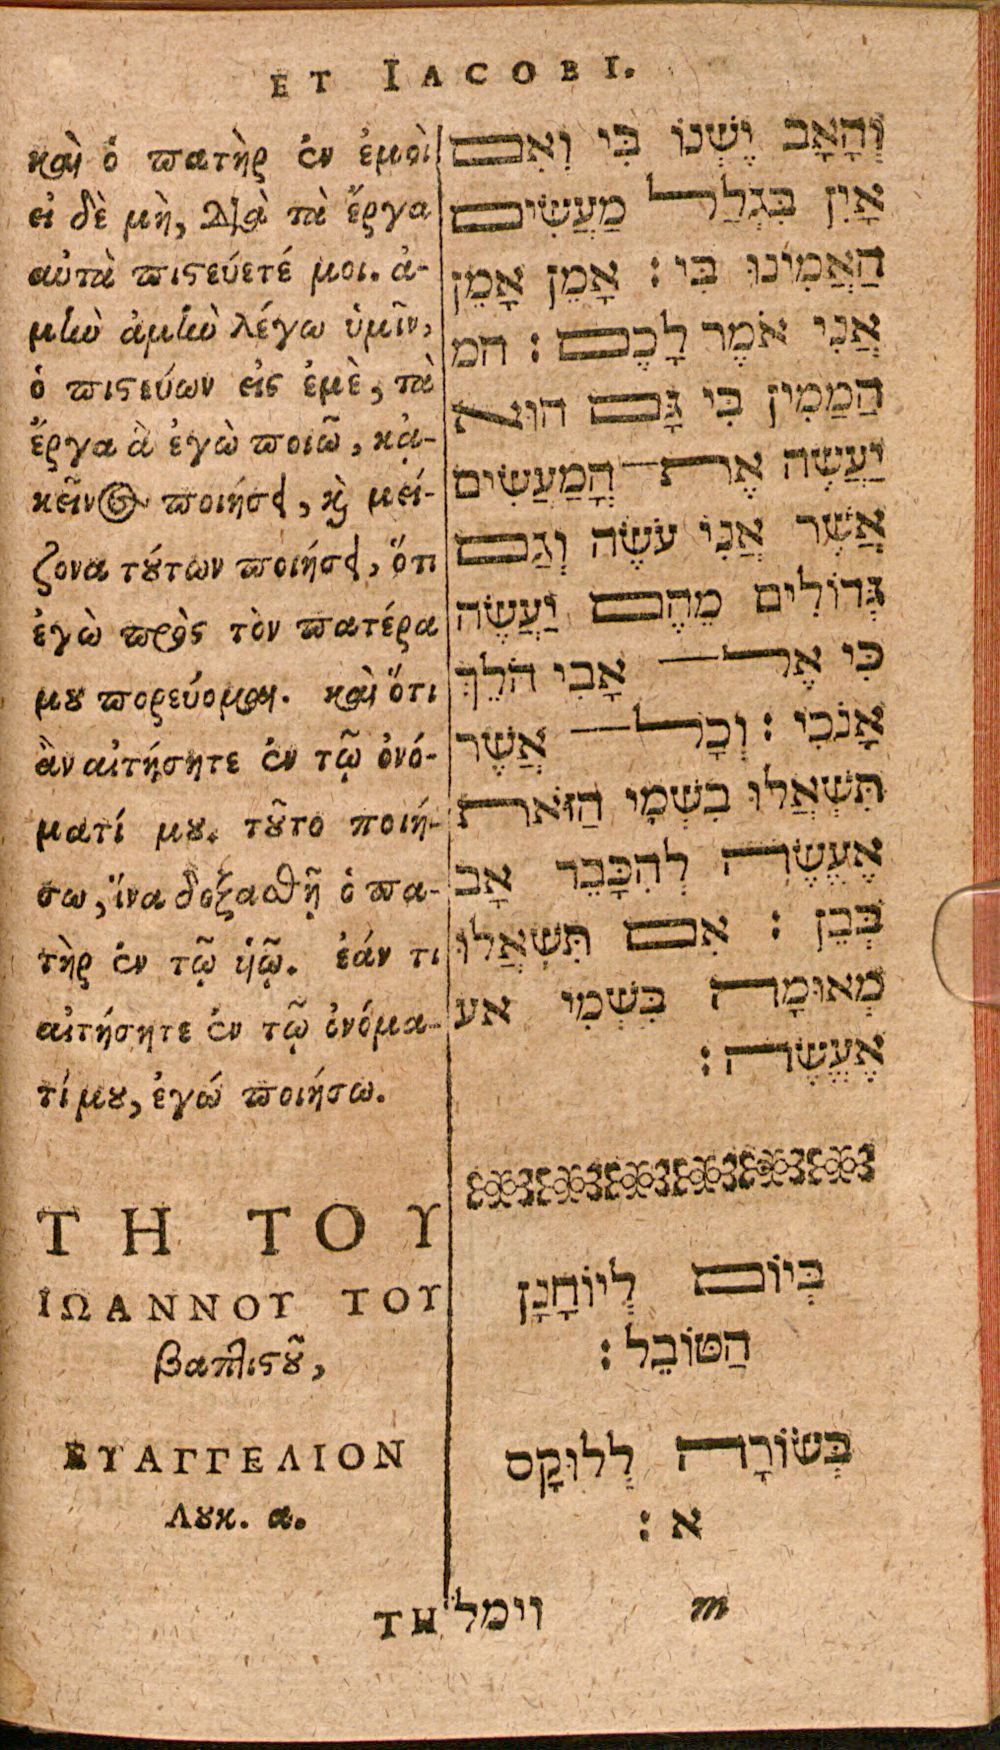 ET IACOBI.
καὶ ὁ πατὴρ ἐν ἐμοὶ
εἰ δὲ μὴ, διὰ τὰ ἔργα
αὐτὰ πιστεύετέ μοι. ἀ-
μὴν ἀμὴν λέγω ὑμῖν,
ὁ πιστεύων εἰς ἐμὲ, τὰ
ἔργα ἃ ἐγὼ ποιῶ, κἀ-
κεῖνος ποιήσει, καὶ μεί-
ζονα τούτων ποιήσει, ὅτι
ἐγὼ πρὸς τὸν πατέρα
μου πορεύομαι. καὶ ὅτι
ἂν αἰτήσητε ἐν τῷ ὀνό-
ματί μου. τοῦτο ποιή-
σω, ἵνα δοξασθῇ ὁ πα-
τὴρ ἐν τῷ υἱῷ. ἐάν τι
αἰτήσητε ἐν τῷ ὀνόμα-
τί μου, ἐγώ ποιήσω.
ΤΗ ΤΟΥ
ΙΩΑΝΝΟΥ ΤΟΥ
βαπτιστοῦ,
ΕΥΑΓΓΕΛΙΟΝ
Λουκ. α.
ΤΗ
וְהָאָב יֶשְׁנוֹ בִּי וְאִם
אָיִן בִּגְלַל מַעֲשִׂים
הַאֲמִינוּ בִּי : אָמֵן אָמֵן
אֲנִי אֹמֶר לָכֶם : המ
הַמַמִין בִּי גָּם הוּא
יַעֲשֶׂה אֶת הֲמַעֲשִׂים
אֲשֶׁר אֲנִי עֹשֶׂה וְגַם
גְּדוֹלִים מֵהֶם יַעֲשֶׂה
כִּי אֶל אָבִי הֹלֵךְ
אָנֹכִי : וְכָל אֲשֶׁר
תִּשְׁאֲלוּ בִשְׁמִי הַזֹּאת
אֶעֱשֶׂה לְהִכָּבֵד אָב
בְּבֵן : אִם תִּשְׁאֲלוּ
מְאוּמָה בִּשְׁמִי אע
אֶעֱשֶׂה :
בְּיוֹם לְיוֹחָנָן
הַטּוֹבֵל :
בְּשׂוֹרָה לְלוּקָס
א :
וימל m